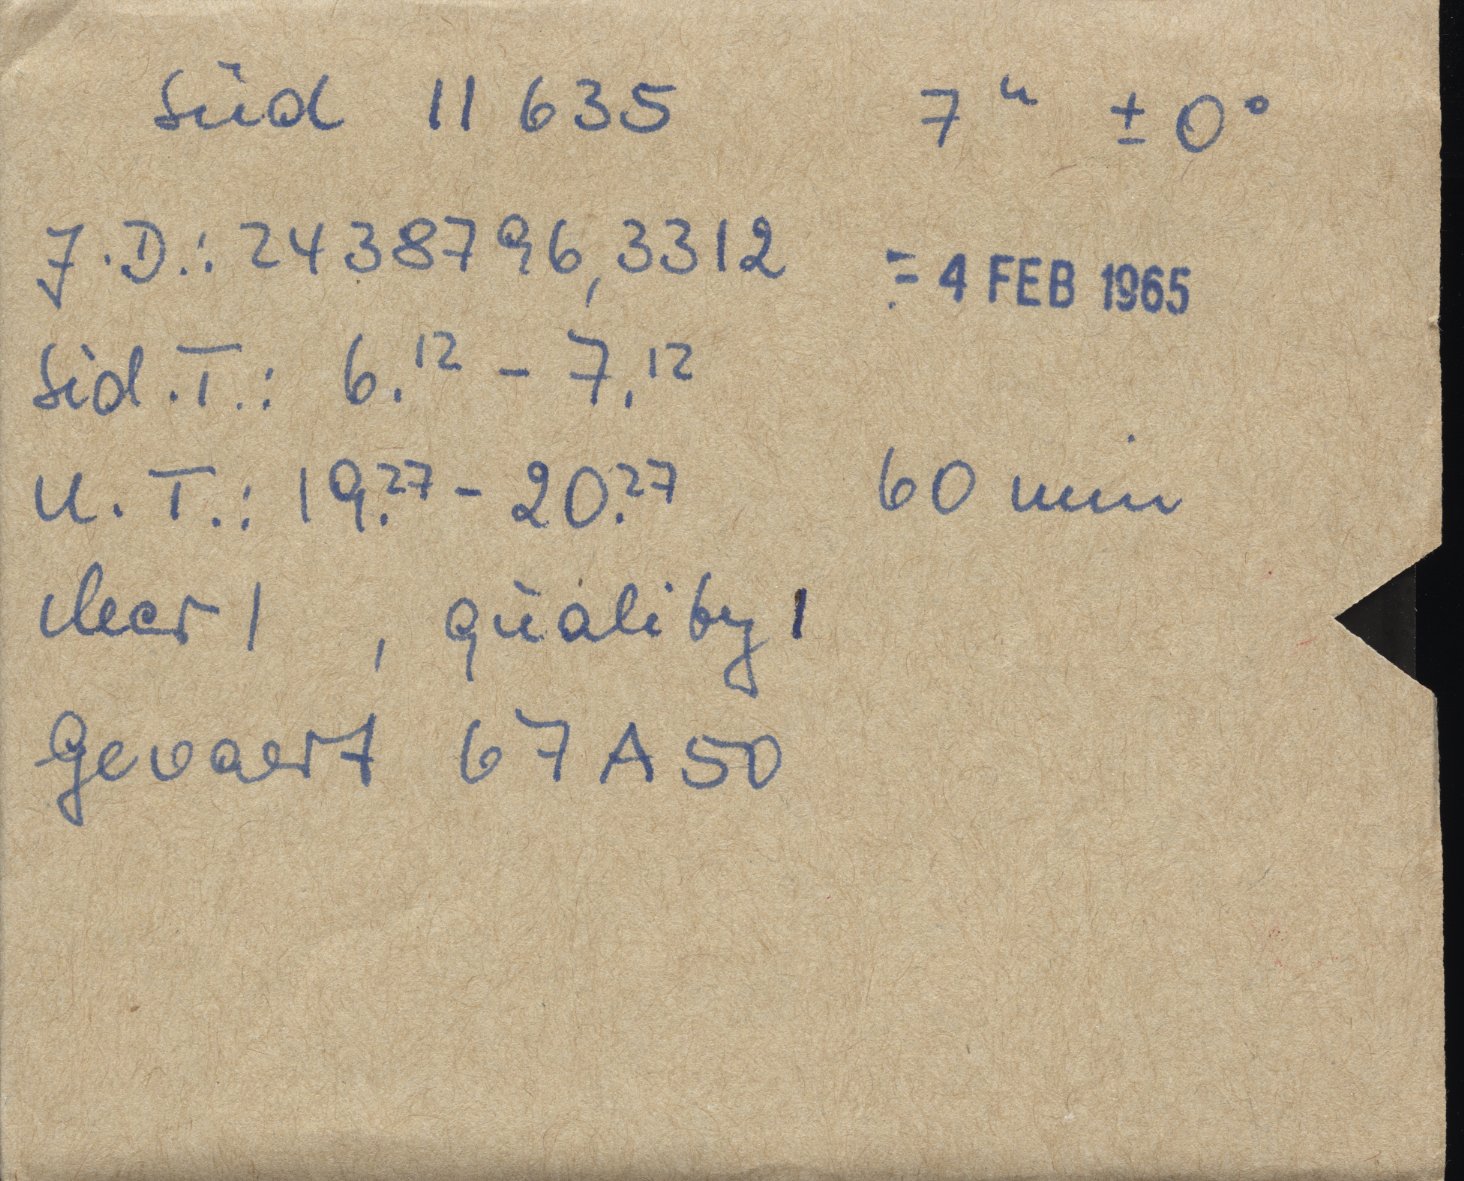 Süd 11 635 7ʰ ± 0°
J.D.: 2438796,3312 = 4 FEB 1965
Sid.T.: 6.¹² - 7.¹²
U.T.: 19.²⁷ - 20.²⁷ 60 min
clear 1, quality 1
Gevaert 67 A 50